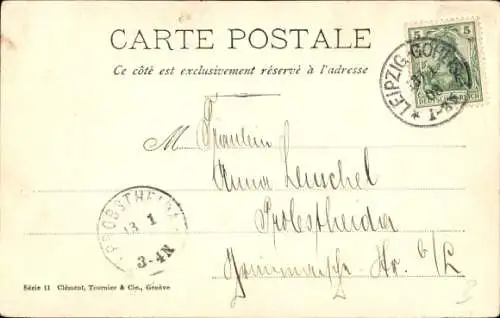 CARTE POSTALE
Ce côté est exclusivement réservé à l'adresse
5 5
DEUTSCHES REICH
LEIPZIG-GOHLIS
1-2
M Fräulein
Anna
Probstheida
Str. b/L
PROBSTHEIDA
13 1
3-4N
Série 11 Clément, Tournier & Cie., Genève